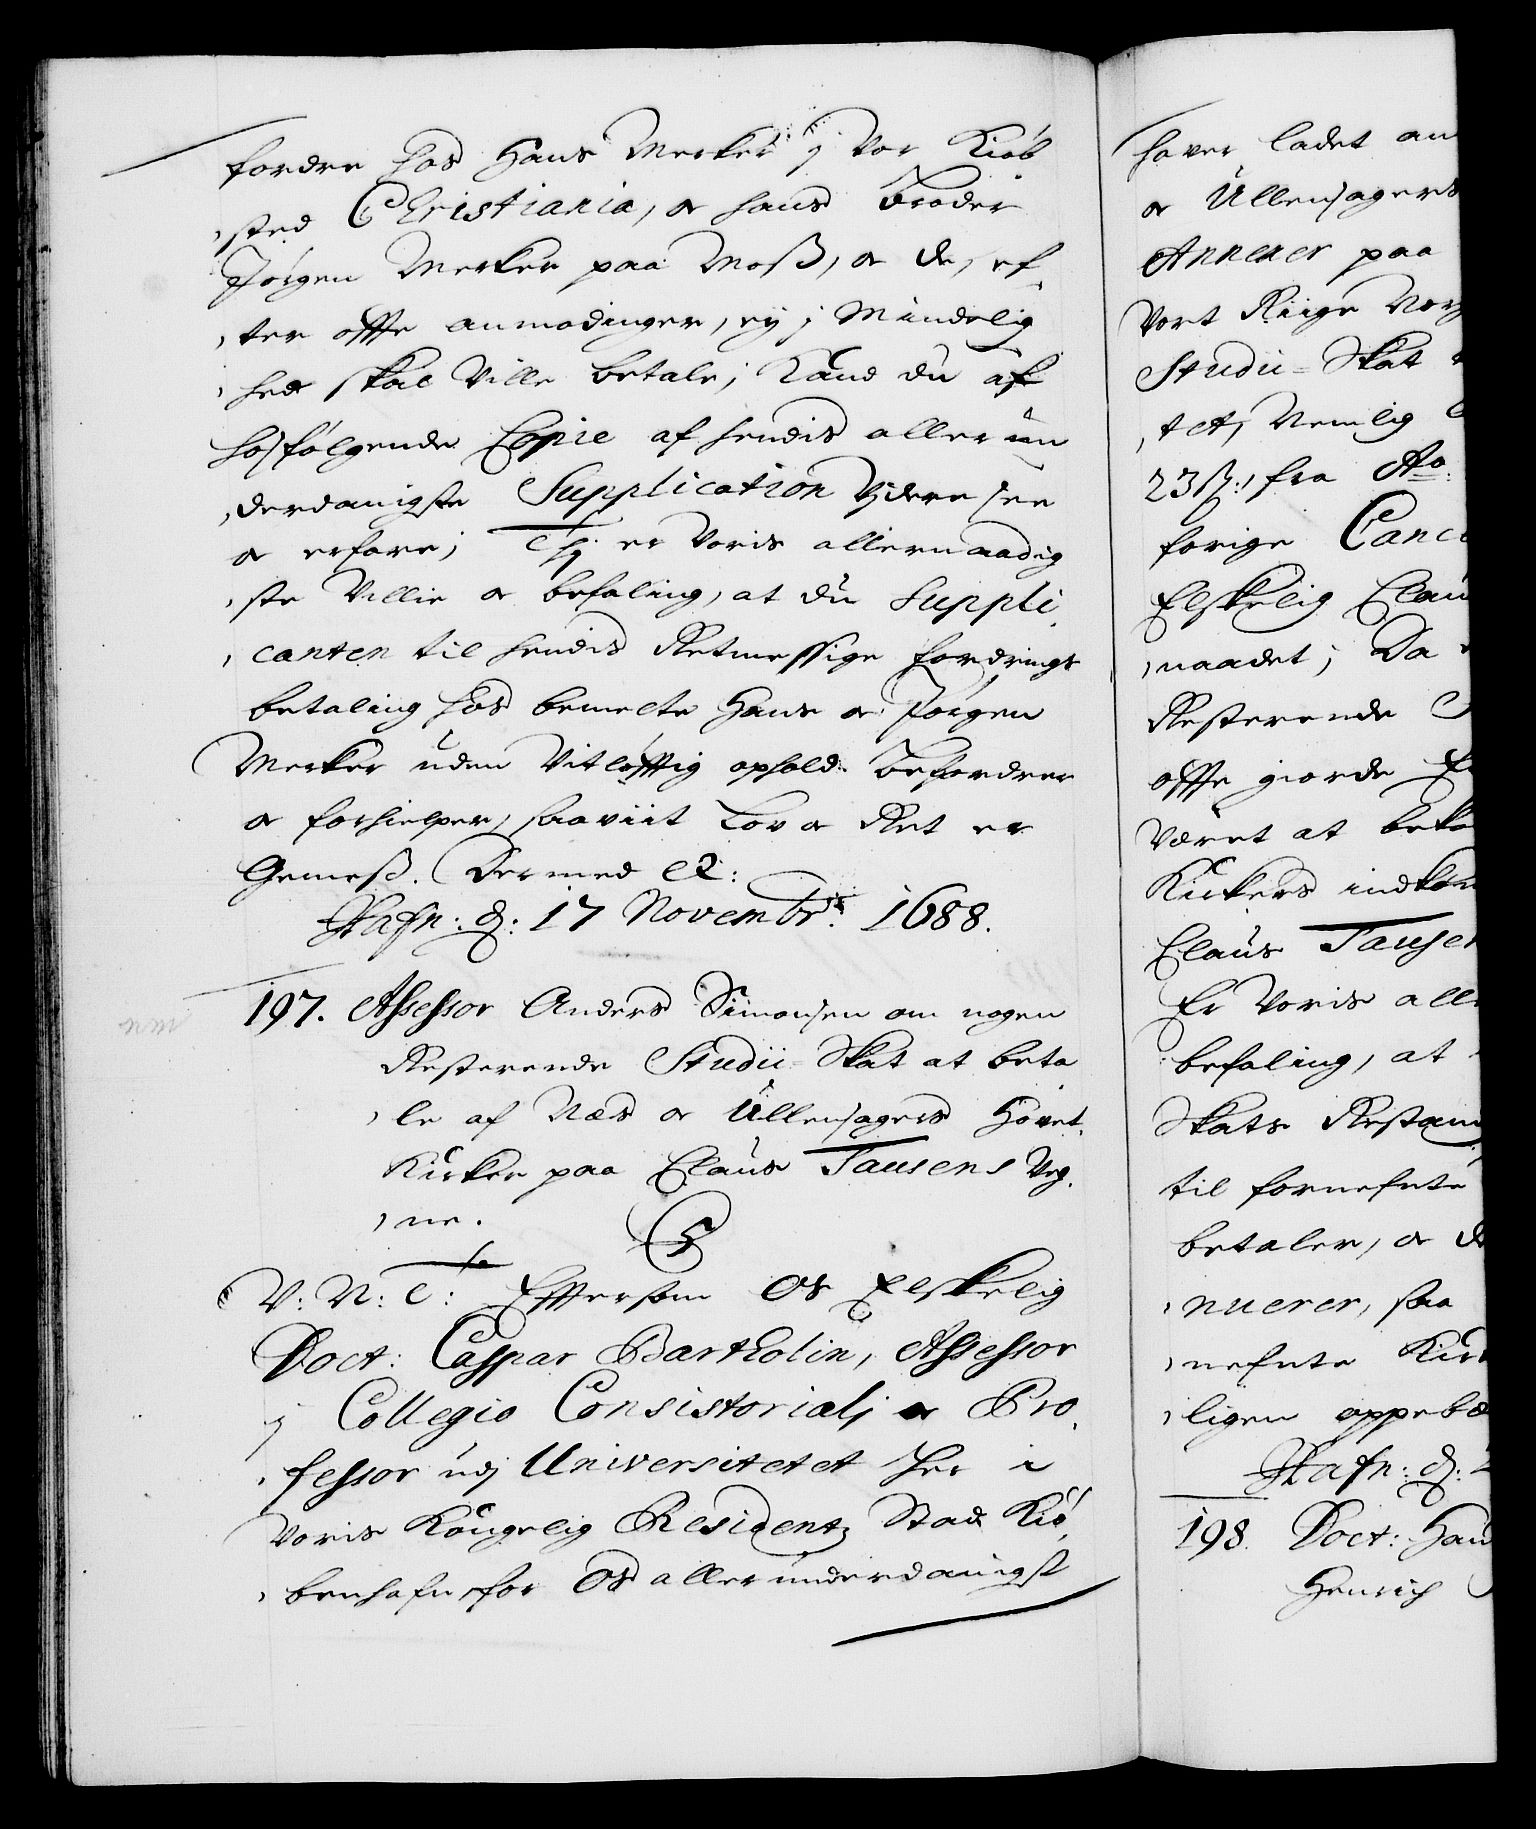 fordre hos Hans Mercker j Vor Kiøb
sted Christiania, oc hans Broder
Jørgen Mercker paa Moß, oc de, ef
ter offte anmodinger, ey j Mindelig
hed skal Ville betale; Kand du af
hosfølgende Copie af hendis allerun
derdanigste Supplication Vjdere see
oc erfare; Thj er Voris allernaadig
ste Villie oc befaling, at du Suppli
canten til hendis Retmessige fordrings
betaling hos bemelte Hans oc Jørgen
Mercker uden Vitløfftig ophold befordrer
oc forhielper, saaviit Lov oc Ret er
Gemeß. Dermed etc:
Hafn: d: 17 Novembr: 1688.
197. Assessor Anders Simonsen om nogen
Resterende Studii-Skat at beta
le af Næs oc Ullensagers Hovet
Kircker paa Claus Tausens Veg
ne.
C5
V: N: T: Eftersom Os Elskelig
Doct: Caspar Bartholin, Assessor
j Collegio Consistorialj oc Pro
fessor udj Universitetet her i
Voris Kongelig Residentz Stad Kiø
benhafn for Os allerunderdanigst
haver ladet an
oc Ullensagers
Annexer paa
Vort Riige Norg
Studii-Skat
tet, Nemlig
23 ß:, fra Ao:
forige Canc
Elskelig Clau
naadet; Da
Resterende
offte giorde
Været at beko
Kirckers indkom
Claus Tausen
Er Voris alle
befaling, at
Skats Restan
til fornefnte
betaler, oc
nuerer, saa
nefnte Kir
ligen oppebæ
Hafn: d: 2
198. Doct: Han
Henrich